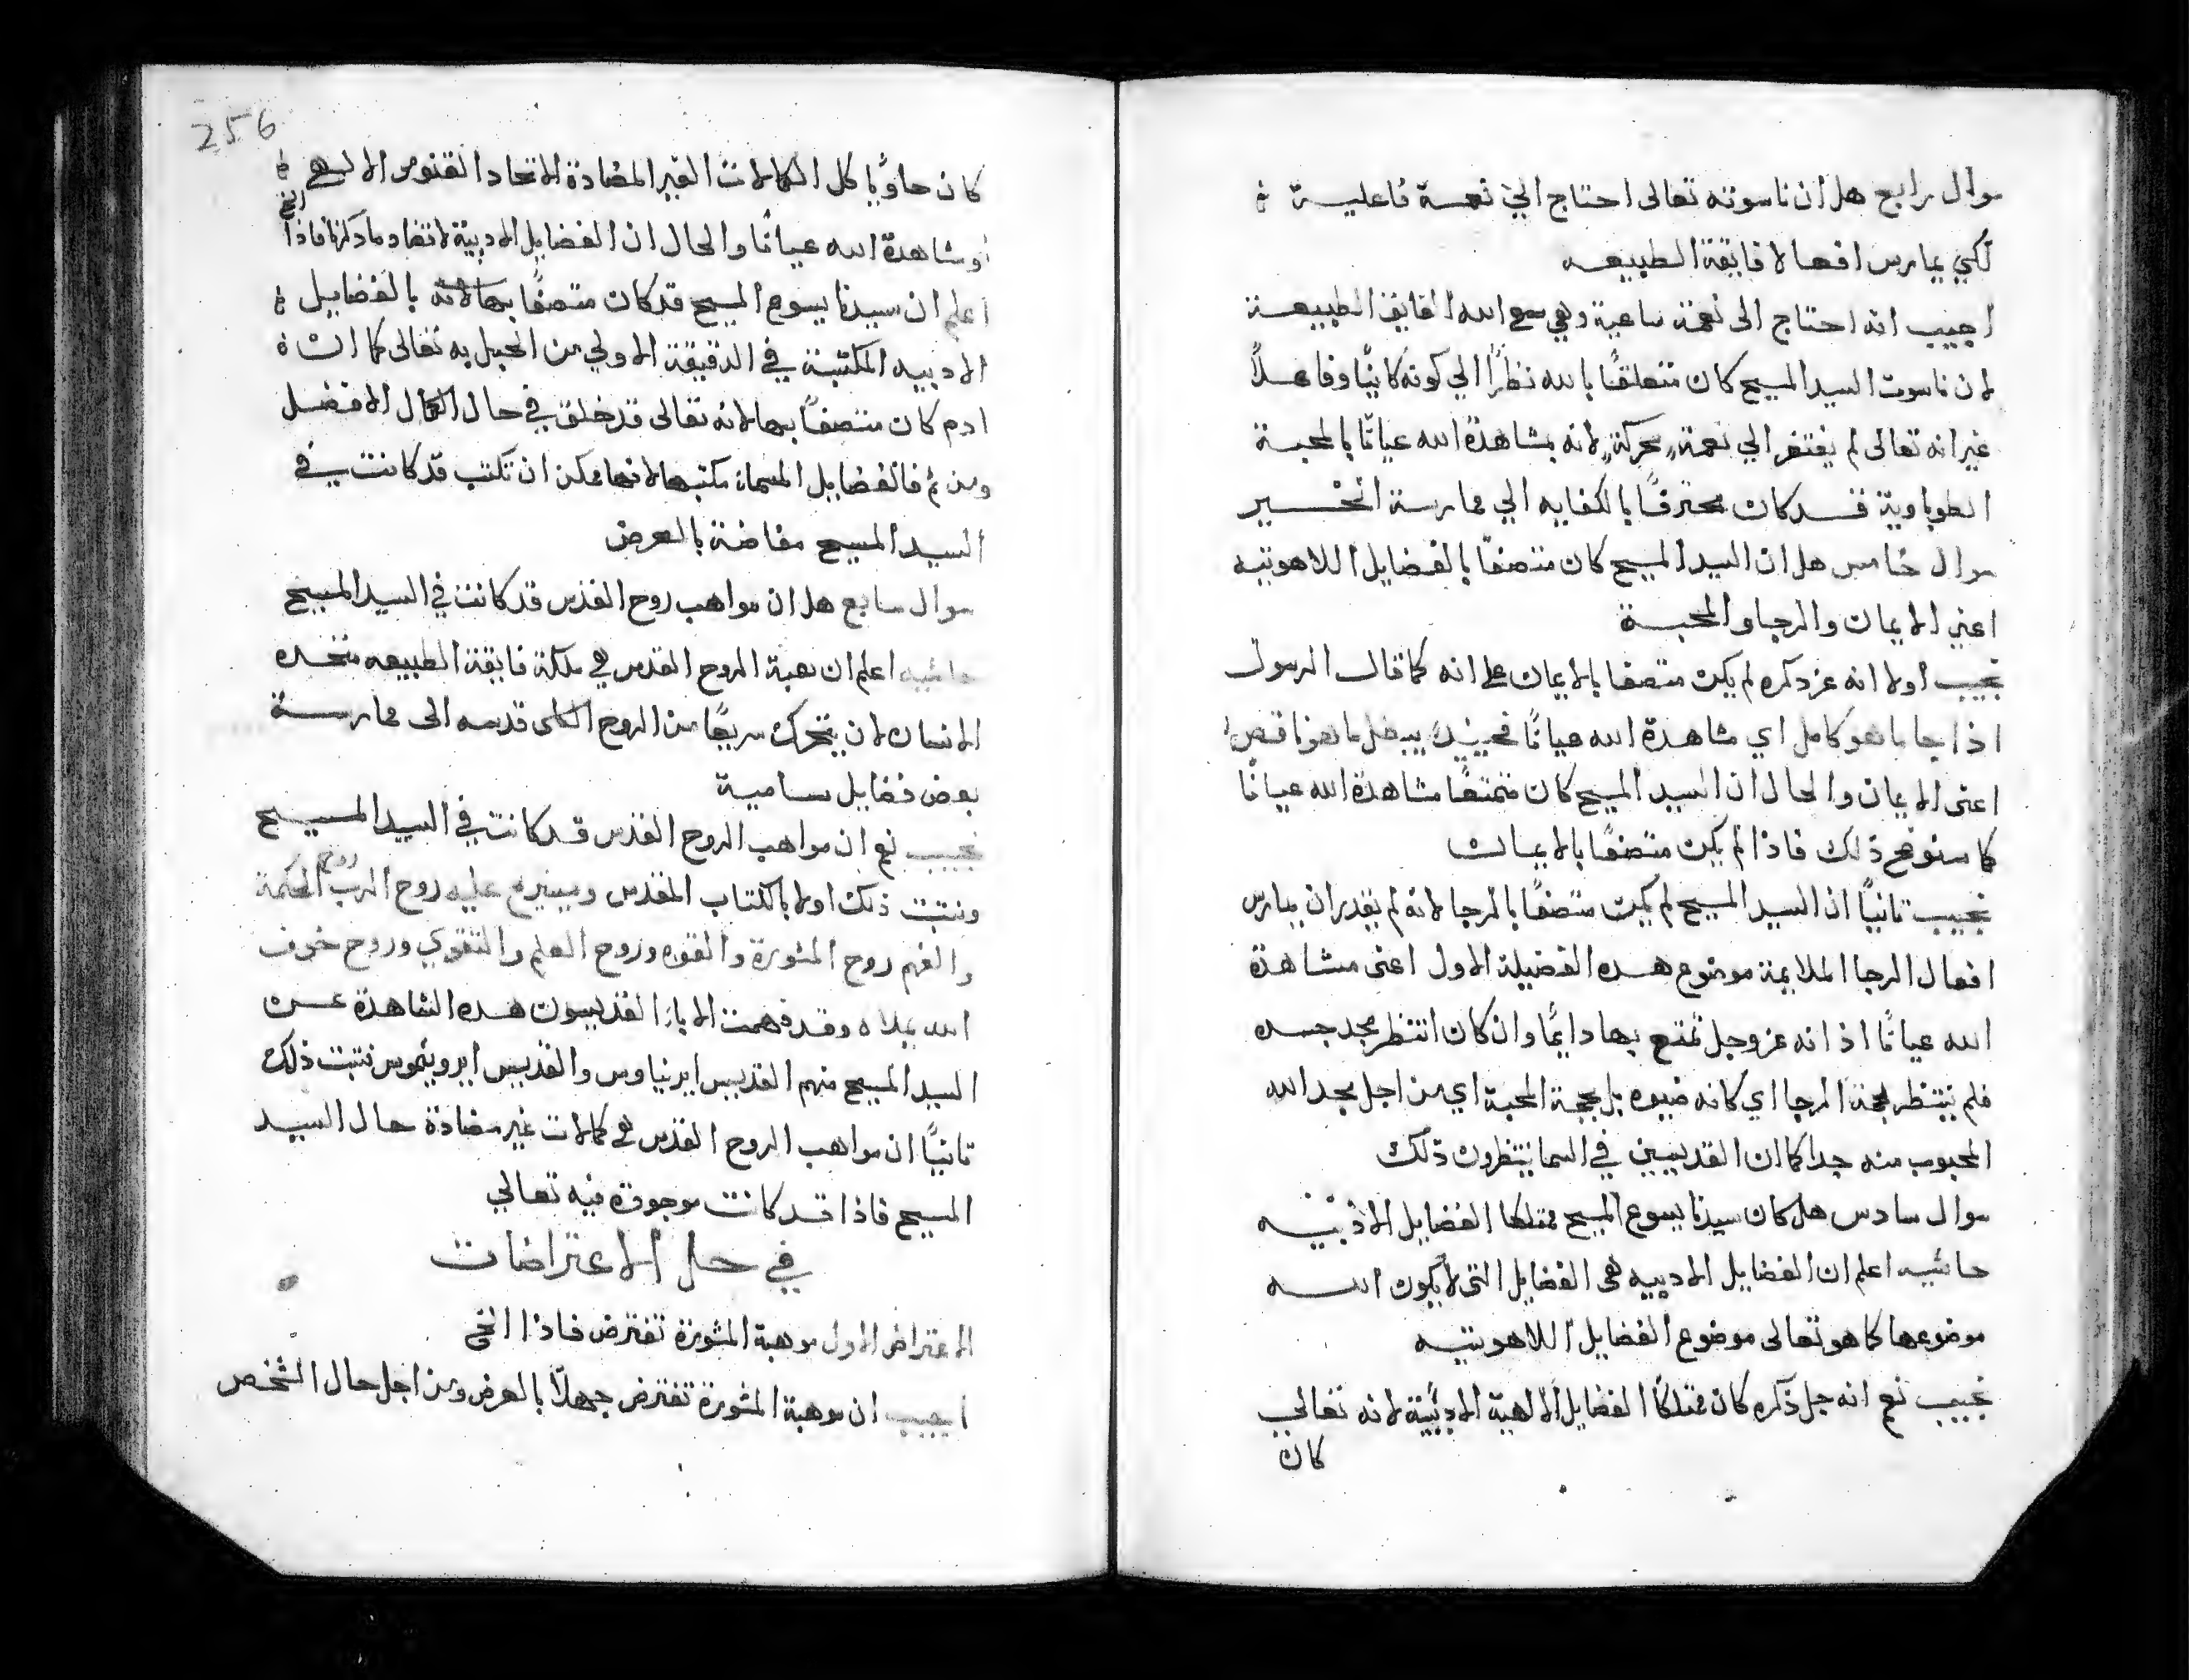 سوال رابع هل ان ناسوته تعالى احتاج الي نعمة فاعلية
لكي يمارس افعالا فايقة الطبيعه
اجيب انه احتاج الى نعمة سامية وهي مع الله الفايق الطبيعة
لان ناسوت السيد المسيح كان متعلقًا بالله نظرًا الي كونه كاينًا وفاعلاً
غير انه تعالى لم يفتقر الي نعمة محركة لانه بمشاهدة الله عيانًا بالمحبة
الطوباوية قد كان محترفًا بالكفايه الي ممارسة الخير
سوال خامس هل ان السيد المسيح كان متصفًا بالفضايل اللاهوتيه
اعني الايمان والرجا والمحبة
نجيب اولا انه عز ذكره لم يكن متصفا بالايمان علي انه كما قال الرسول
اذا جا ما هو كامل اي مشاهدة الله عيانًا فحينيذ يبطل ما هو ناقص
اعنى الايمان والحال ان السيد المسيح كان متمتعًا مشاهدة الله عيانًا
كما سنوضح ذلك فاذا لم يكن متصفًا بالايمان
نجيب تانيًا ان السيد المسيح لم يكن متصفًا بالرجا لانه لم يقدر ان يمارس
افعال الرجا الملايمة موضوع هده الفضيلة الاول اعنى مشاهدة
الله عيانًا اذ انه عز وجل تمتع بها دايمًا وان كان انتظر مجد جسده
فلم ينتظر بحجة الرجا اي كانه خيره بل بحجة المحبة اي من اجل مجد الله
المحبوب منه جدا كما ان القديسين في السما ينتظرون ذلك
سوال سادس هل كان سيدنا يسوع المسيح ممتلكا الفضايل الادبيه
حاشيه اعلم ان الفضايل الادبيه هى الفضايل التى لا يكون الله
موضوعها كما هو تعالى موضوع الفضايل اللاهوتيه
نجيب نعم انه جل ذكره كان ممتلكًا الفضايل الالهية الادبية لانه تعالي
كان
256
كان حاويًا كل الكمالات الغير المضادة الاتحاد القنومى الالهى
او مشاهدة الله عيانًا والحال ان الفضايل الادبية لا تضاد ما ذكرنا فاذا الخ
اعلم ان سيدنا يسوع المسيح قد كان متصفًا بالفضايل
الادبيه المكتسبة في الدقيقة الاولي من الحبل به تعالى كما ان
ادم كان متصفًا بها لانه تعالى قد خلق في حال الكمال الافضل
ومن ثم فالفضايل المسماة مكتسبه لانها ممكن ان تكتسب قد كانت في
السيد المسيح مفاضة بالعرض
سوال سابع هل ان مواهب روح القدس قد كانت في السيد المسيح
حاشيه اعلم ان هبة الروح القدس هي ملكة فايقة الطبيعه
الانسان لان يتحرك سريعًا من الروح الكلى قدسه الى ممارسة
بعض فضايل سامية
نجيب نعم ان مواهب الروح القدس قد كانت في السيد المسيح
ونتبت ذلك اولا بالكتاب المقدس وسيتريح عليه روح الرب روح الحكمة
والفهم روح المشورة والقوه وروح العلم والتقوي وروح خوف
الله يملاه وقد فهمت الابا القديسون هده الشاهدة عن
السيد المسيح منهم القديس ايريناوس والقديس ايرونيموس نتبت ذلك
تانيًا ان مواهب الروح القدس هي كمالات غير مضادة حال السيد
المسيح فاذا قد كانت موجودة فيه تعالي
في حل الاعتراضات
الاعتراض الاول موهبة المشورة تفترض فاذا الخ
اجيب ان موهبة المشورة تفترض جهلاً بالعرض ومن اجل حال الشخص